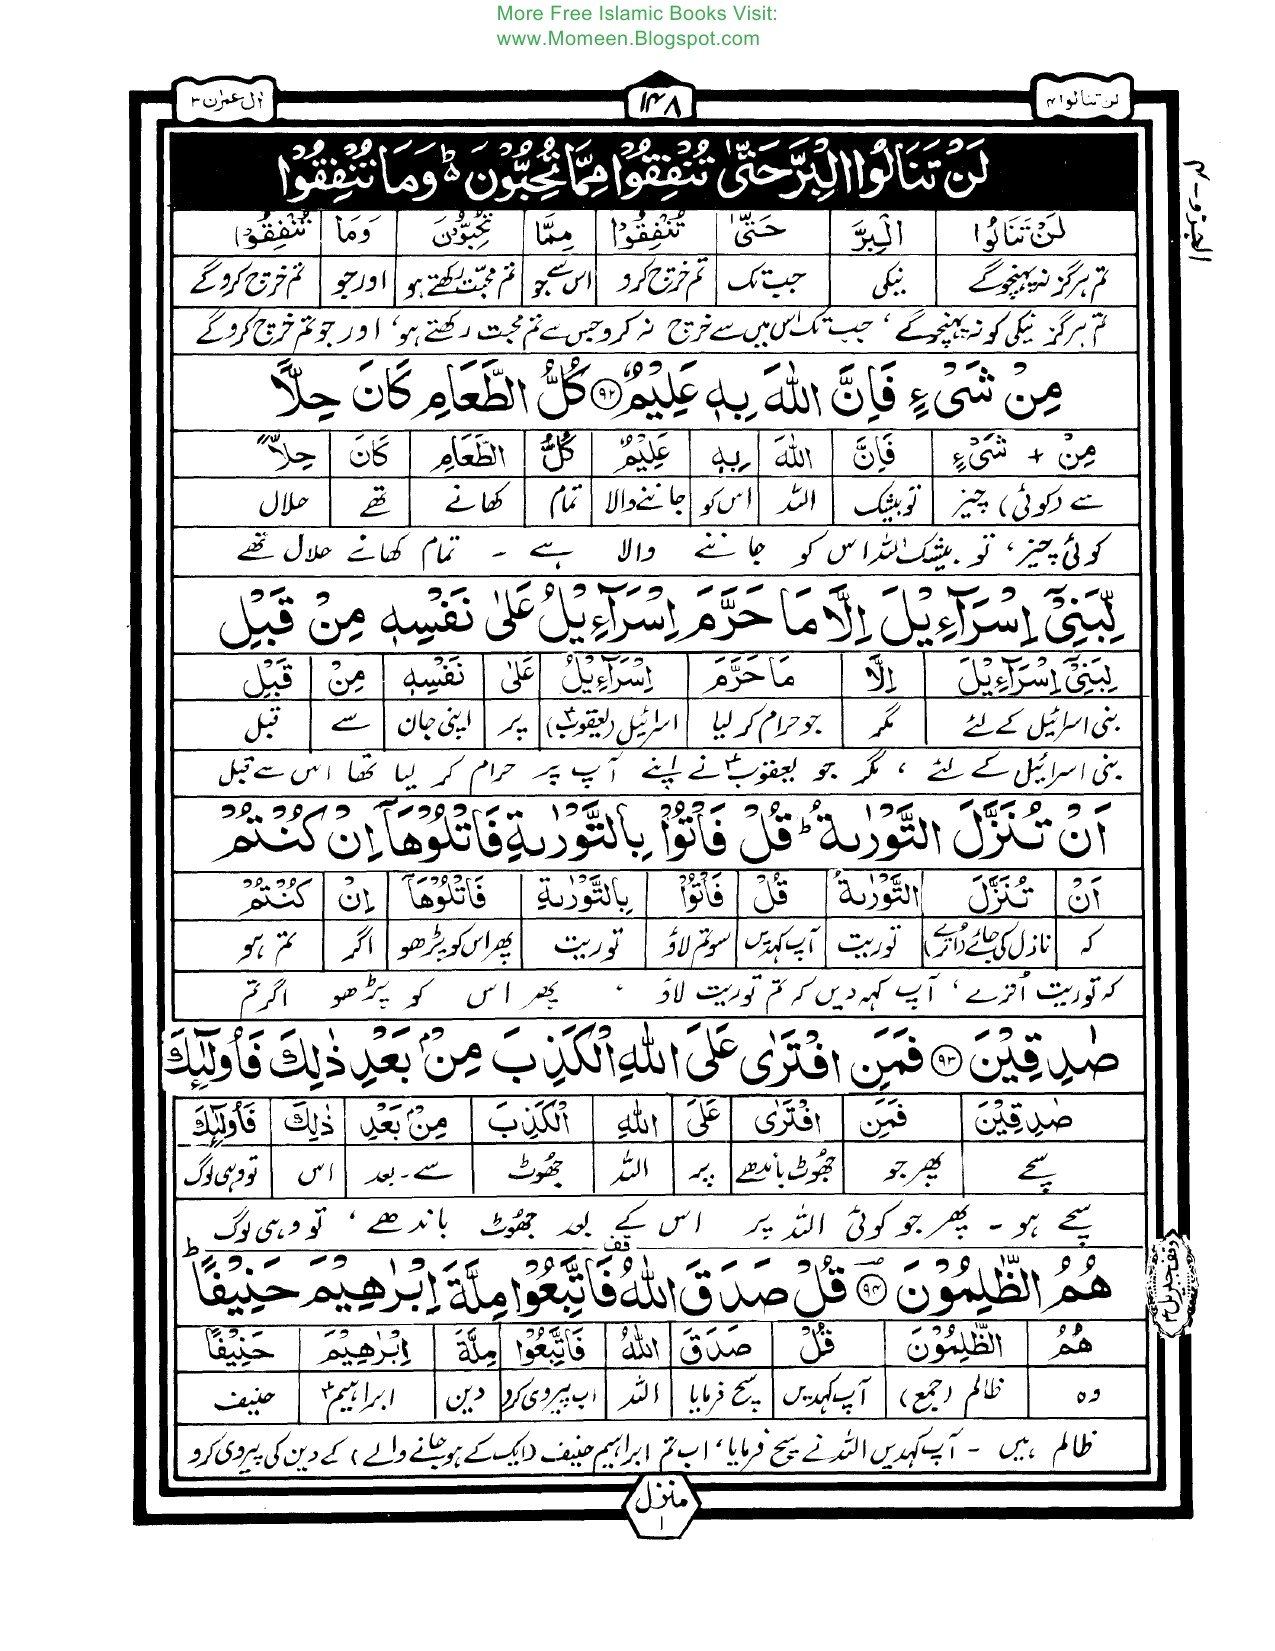 More Free Islamic Books Visit:
www.Momeen.Blogspot.com
لن تنالوا ۴ ۱۴۸ اٰل عمرٰن ۳
الجزو - ۴
لَنْ تَنَالُوا الْبِرَّ حَتّٰى تُنْفِقُوْا مِمَّا تُحِبُّوْنَ ؕ وَمَا تُنْفِقُوْا
لَنْ تَنَالُوا الْبِرَّ حَتّٰى تُنْفِقُوْا مِمَّا تُحِبُّوْنَ وَمَا تُنْفِقُوْا
تم ہرگز نہ پہنچو گے نیکی جب تک تم خرچ کرو اس سے جو تم محبت رکھتے ہو اور جو تم خرچ کرو گے
تم ہرگز نیکی کو نہ پہنچو گے ، جب تک اس میں سے خرچ نہ کرو جس سے تم محبت رکھتے ہو ، اور جو تم خرچ کرو گے
مِنْ شَىْءٍ فَاِنَّ اللّٰهَ بِهٖ عَلِيْمٌ ﴿۹۲﴾ كُلُّ الطَّعَامِ كَانَ حِلًّا
مِنْ + شَىْءٍ فَاِنَّ اللّٰهَ بِهٖ عَلِيْمٌ كُلُّ الطَّعَامِ كَانَ حِلًّا
سے (کوئی) چیز تو بیشک اللہ اس کو جاننے والا تمام کھانے تھے حلال
کوئی چیز ، تو بیشک اللہ اس کو جاننے والا ہے - تمام کھانے حلال تھے
لِّبَنِىْٓ اِسْرَآءِيْلَ اِلَّا مَا حَرَّمَ اِسْرَآءِيْلُ عَلٰى نَفْسِهٖ مِنْ قَبْلِ
لِبَنِىْٓ اِسْرَآءِيْلَ اِلَّا مَا حَرَّمَ اِسْرَآءِيْلُ عَلٰى نَفْسِهٖ مِنْ قَبْلِ
بنی اسرائیل کے لئے مگر جو حرام کر لیا اسرائیل (یعقوبؑ) پر اپنی جان سے قبل
بنی اسرائیل کے لئے ، مگر جو یعقوبؑ نے اپنے آپ پر حرام کر لیا تھا اس سے قبل
اَنْ تُنَزَّلَ التَّوْرٰىةُ ؕ قُلْ فَاْتُوْا بِالتَّوْرٰىةِ فَاتْلُوْهَآ اِنْ كُنْتُمْ
اَنْ تُنَزَّلَ التَّوْرٰىةُ قُلْ فَاْتُوْا بِالتَّوْرٰىةِ فَاتْلُوْهَآ اِنْ كُنْتُمْ
کہ نازل کی جائے (اترے) توریت آپ کہدیں سو تم لاؤ توریت پھر اس کو پڑھو اگر تم ہو
کہ توریت اترے ، آپ کہہ دیں کہ تم توریت لاؤ ، پھر اس کو پڑھو اگر تم
صٰدِقِيْنَ ﴿۹۳﴾ فَمَنِ افْتَرٰى عَلَى اللّٰهِ الْكَذِبَ مِنْۢ بَعْدِ ذٰلِكَ فَاُولٰٓئِكَ
صٰدِقِيْنَ فَمَنِ افْتَرٰى عَلَى اللّٰهِ الْكَذِبَ مِنْۢ بَعْدِ ذٰلِكَ فَاُولٰٓئِكَ
سچے پھر جو جھوٹ باندھے پر اللہ جھوٹ سے - بعد اس تو وہی لوگ
سچے ہو - پھر جو کوئی اللہ پر اس کے بعد جھوٹ باندھے ، تو وہی لوگ
هُمُ الظّٰلِمُوْنَ ﴿۹۴﴾ قُلْ صَدَقَ اللّٰهُ قف فَاتَّبِعُوْا مِلَّةَ اِبْرٰهِيْمَ حَنِيْفًا ؕ
وقف جبریل
هُمُ الظّٰلِمُوْنَ قُلْ صَدَقَ اللّٰهُ فَاتَّبِعُوْا مِلَّةَ اِبْرٰهِيْمَ حَنِيْفًا
وہ ظالم (جمع) آپ کہدیں سچ فرمایا اللہ اب پیروی کرو دین ابراہیمؑ حنیف
ظالم ہیں - آپ کہدیں اللہ نے سچ فرمایا ، اب تم ابراہیم حنیف (ایک کے ہو جانے والے) کے دین کی پیروی کرو
منزل
۱